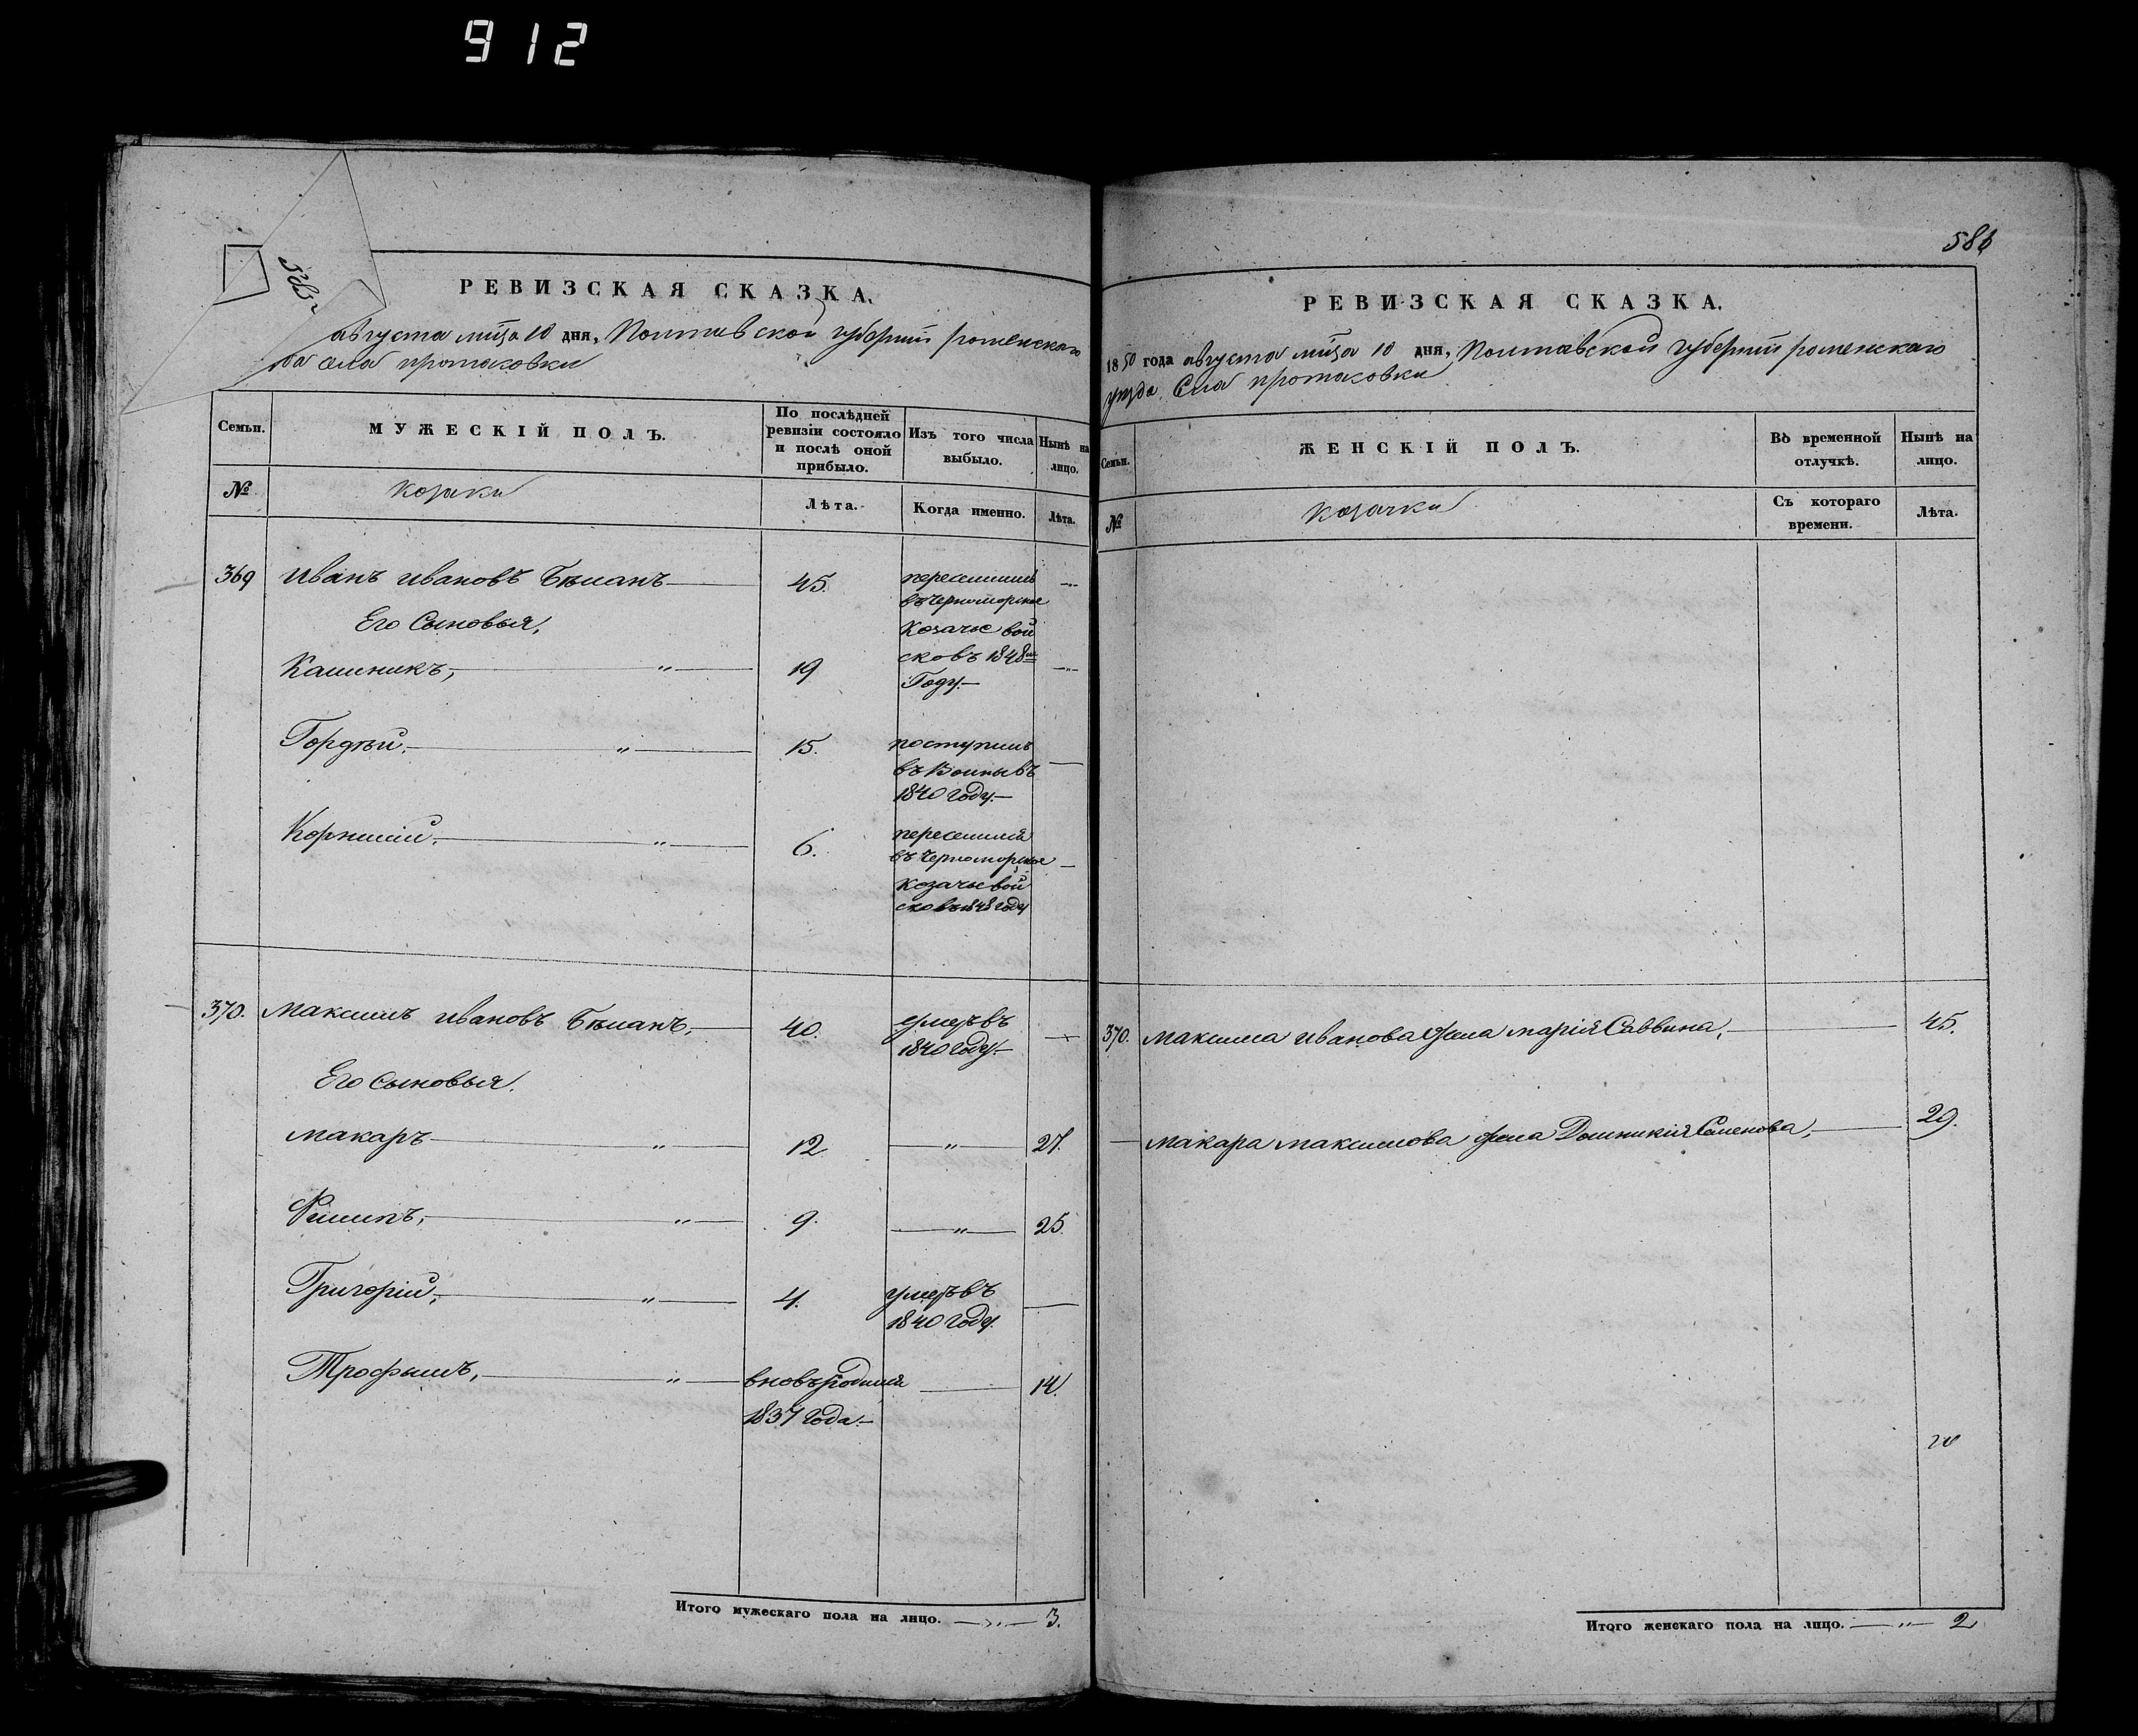 912
РЕВИЗСКАЯ СКАЗКА.
августа мца 10 дня, Полтавской губернии роменскаго
села протасовки
Семьи.
МУЖЕСКІЙ ПОЛЪ.
По послѣдней ревизіи состояло и послѣ оной прибыло.
Изъ того числа выбыло.
Нынѣ на лицо.
№
козаки
Лѣта.
Когда именно.
Лѣта.
369 Иванъ Ивановъ 45. переселился
въ Черноморское
Его Сыновья,
Козачье вой
Калиникъ, " 19 сковъ 1848м
Году.
Гордѣй. " 15. поступилъ
въ
1840 году.
Корнилій. " 6. переселился
въ Черноморское
козачье вой
сковъ 1848 году
370. Максимъ Ивановъ 40. умеръ въ
1840 году.
Его Сыновья.
Макаръ " 12. " 27.
Филипъ, " 9. " 25.
Григорій, " 4. умеръ въ
1840 году.
Трофымъ, " вновь родился 14.
1837 года.
Итого мужескаго пола на лицо. " 3.
586
РЕВИЗСКАЯ СКАЗКА.
1850 года августа мца 10 дня, Полтавской губерніи роменскаго
уезда Села протасовки
Семьи.
ЖЕНСКІЙ ПОЛЪ.
Въ временной отлучкѣ.
Нынѣ на лицо.
№
козачки
Съ котораго времени.
Лѣта.
370. Максима Иванова жена Марія Саввина, 45.
Макара Максимова жена Домникія Семенова, 29.
Итого женскаго пола на лицо. " 2